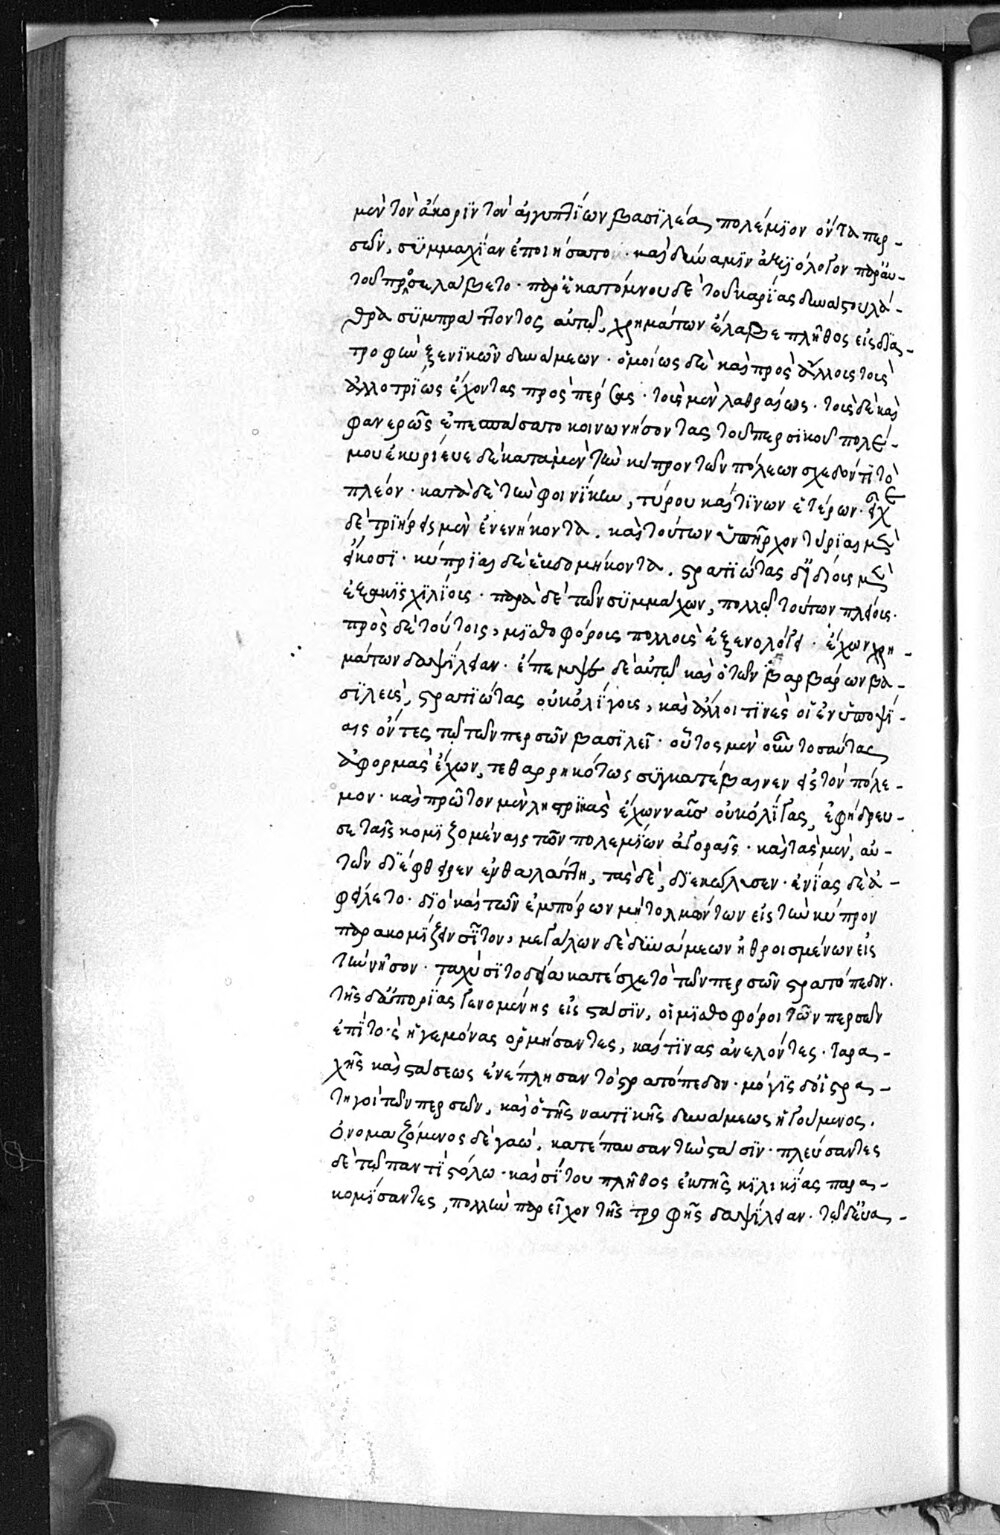 μὲν τὸν ἄκοριν τὸν αἰγυπτίων βασιλέα, πολέμιον ὄντα περ-
σῶν, συμμαχίαν ἐποιήσατο · καὶ δύναμιν ἀξιόλογον παρ' αὐ-
τοῦ προσελάβετο · παρ' ἑκατόμνου δὲ τοῦ καρίας δυνάστου λά-
θρα συμπράττοντος αὐτῷ, χρημάτων ἔλαβε πλῆθος εἰς δια-
τροφὴν ξενικῶν δυνάμεων · ὁμοίως δὲ καὶ πρὸς ἄλλοις τοῖς
ἀλλοτρίως ἔχοντας πρὸς πέρσας · τοὺς μὲν λαθραίως · τοὺς δὲ καὶ
φανερῶς ἐπεσπάσατο κοινωνήσοντας τοῦ περσικοῦ πολέ-
μου ἐκυρίευε δὲ κατὰ μὲν τὴν κύπρον τῶν πόλεων σχεδόν τι τὸ
πλέον · κατὰ δὲ τὴν φοινίκην, τύρου καί τινων ἑτέρων · εἶχε
δὲ τριήρεις μὲν ἐνενήκοντα · καὶ τούτων ὑπῆρχον τύριαι μὲν
εἴκοσι · κύπριαι δὲ ἑβδομήκοντα · στρατιώτας δ' ἰδίους μὲν
ἑξακισχιλίους · παρὰ δὲ τῶν συμμάχων, πολλῷ τούτων πλείους ·
πρὸς δὲ τούτοις, μισθοφόρους πολλοὺς ἐξενολόγει · ἔχων χρη-
μάτων δαψίλειαν · ἔπεμψε δὲ αὐτῷ καὶ ὁ τῶν βαρβάρων βα-
σιλεὺς, στρατιώτας οὐκ ὀλίγους, καὶ ἄλλοι τινὲς οἱ ἐν ὑποψί-
αις ὄντες τῷ τῶν περσῶν βασιλεῖ · οὗτος μὲν οὖν τοσαύτας
ἀφορμὰς ἔχων, τεθαρρηκότως συγκατέβαινεν εἰς τὸν πόλε-
μον · καὶ πρῶτον μὲν λῃστρικὰς ἔχων ναῦς οὐκ ὀλίγας, ἐφήδρευ-
σε ταῖς κομιζομέναις τῶν πολεμίων ἀγοραῖς · καὶ τὰς μὲν, αὐ-
τῶν διέφθειρεν ἐν θαλάττῃ, τὰς δὲ, διεκώλυσεν · ἐνίας δὲ ἀ-
φείλετο · διὸ καὶ τῶν ἐμπόρων μὴ τολμώντων εἰς τὴν κύπρον
παρακομίζειν σῖτον, μεγάλων δὲ δυνάμεων ἠθροισμένων εἰς
τὴν νῆσον · ταχὺ σιτοδεία κατέσχε τὸ τῶν περσῶν στρατόπεδον ·
τῆς δ' ἀπορίας γενομένης εἰς στάσιν, οἱ μισθοφόροι τῶν περσῶν
ἐπὶ τοὺς ἡγεμόνας ὁρμήσαντες, καί τινας ἀνελόντες · ταρα-
χῆς καὶ στάσεως ἐνέπλησαν τὸ στρατόπεδον · μόγις δ' οἱ στρα-
τηγοὶ τῶν περσῶν, καὶ ὁ τῆς ναυτικῆς δυνάμεως ἡγούμενος,
ὀνομαζόμενος δὲ γαὼ, κατέπαυσαν τὴν στάσιν · πλεύσαντες
δὲ τῷ παντὶ στόλῳ · καὶ σίτου πλῆθος ἐκ τῆς κιλικίας παρα-
κομίσαντες, πολλὴν παρεῖχον τῆς τροφῆς δαψίλειαν · τῷ δ' εὐα-